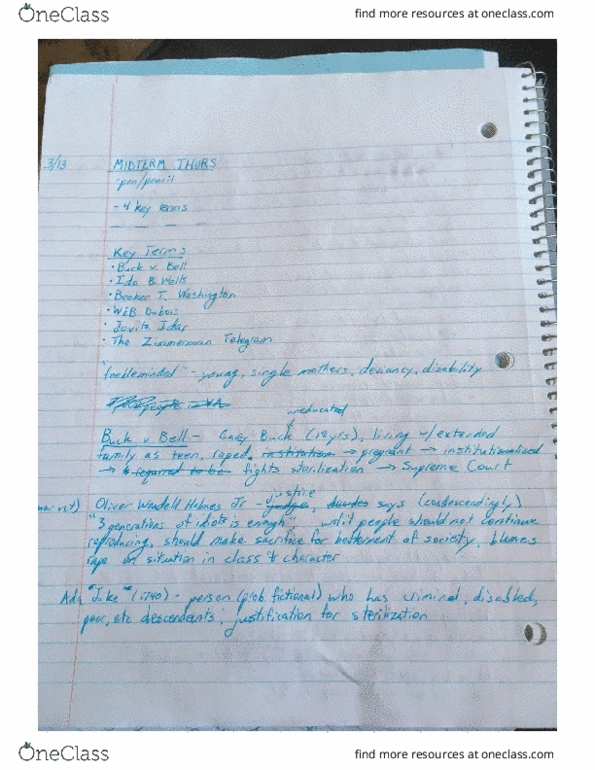 OneClass
find more resources at oneclass.com
3/13 MIDTERM THURS
-pen/pencil
- 4 key terms
Key Terms
• Buck v. Bell
• Ida B. Wells
• Booker T. Washington
• WEB Dubois
• Jovita Idar
• The Zimmerman Telegram
"feebleminded" - young, single mothers, deviancy, disability
people
uneducated
Buck v Bell - Buck (18yrs), living w/extended
family as teen, raped, institution → pregnant → institutionalized
→ required to be fights sterilization → Supreme Court
justice
Oliver Wendell Holmes Jr - judge, says (condescendingly)
"3 generations of idiots is enough", unfit people should not continue
reproducing, should make sacrifice for betterment of society, blames
rape on situation in class & character
Ada "Juke" (1740) - person (prob fictional) who has criminal, disabled,
poor, etc descendents, justification for sterilization
OneClass
find more resources at oneclass.com